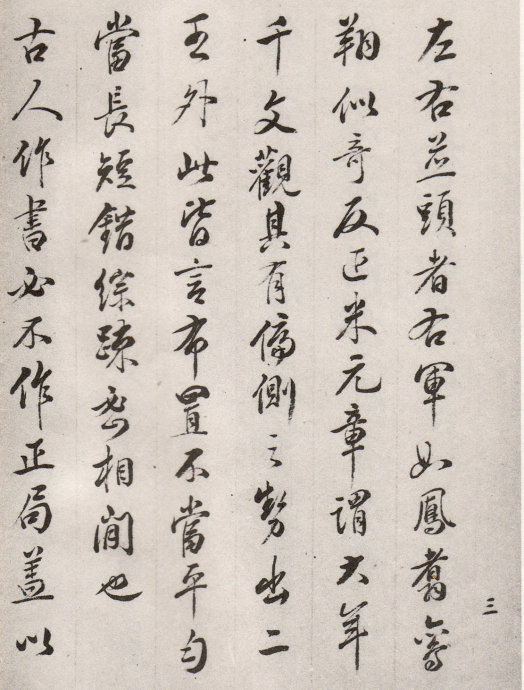 三
左右並頭者右軍如鳳翥鸞
翔似奇反正米元章謂大年
千文觀其有偏側之勢出二
王外此皆言布置不當平勻
當長短錯綜疎密相間也
古人作書必不作正局蓋以